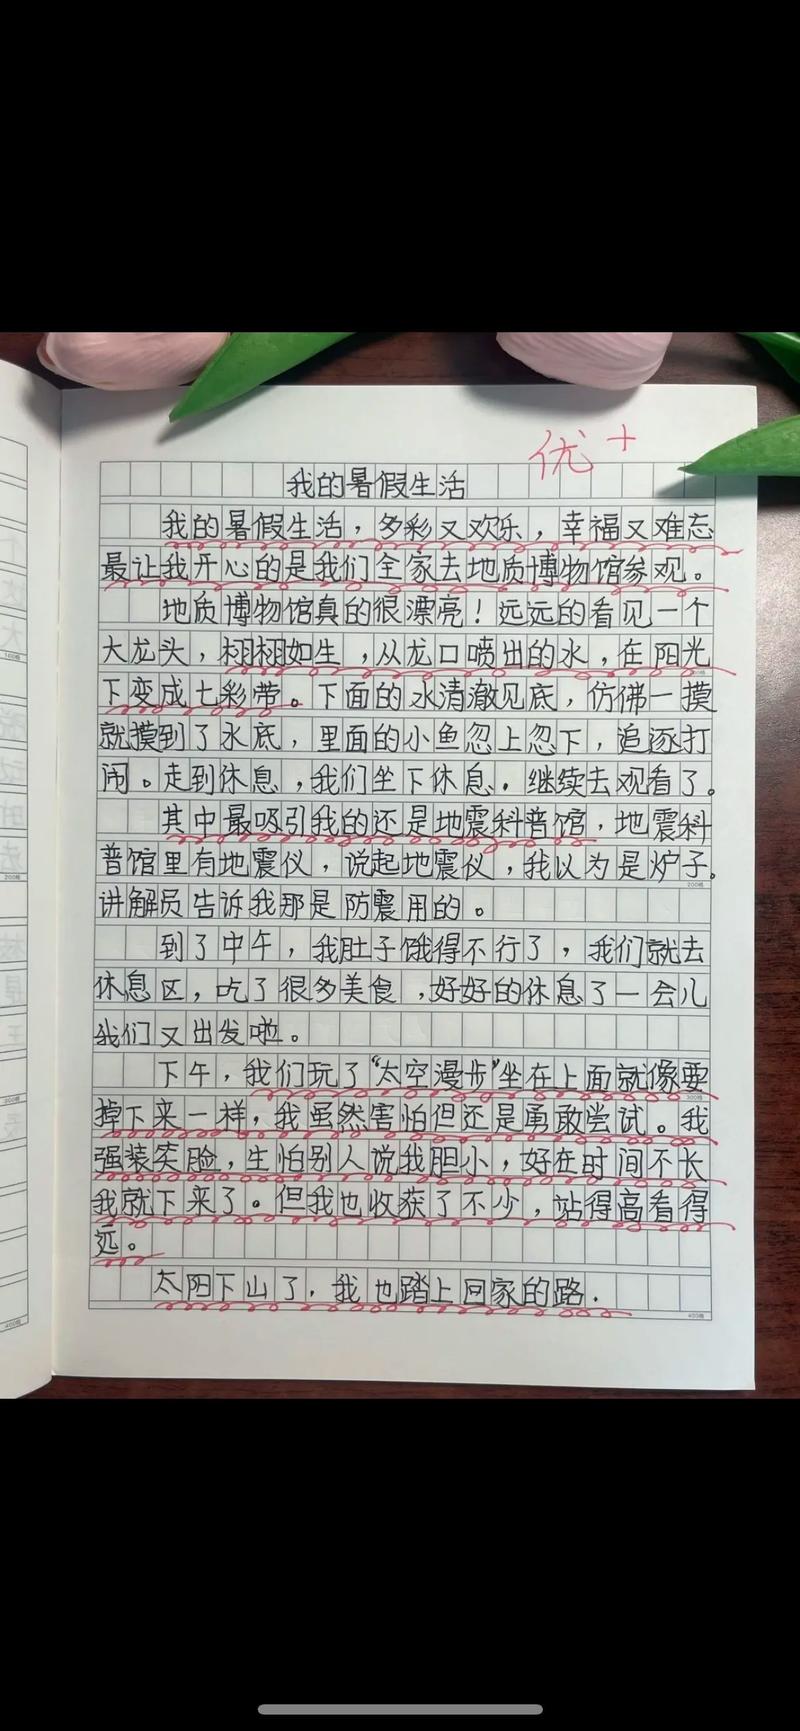 优+
我的暑假生活
我的暑假生活，多彩又欢乐，幸福又难忘
最让我开心的是我们全家去地质博物馆参观。
地质博物馆真的很漂亮！远远的看见一个
大龙头，栩栩如生，从龙口喷出的水，在阳光
下变成七彩带。下面的水清澈见底，仿佛一摸
就摸到了水底，里面的小鱼忽上忽下，追逐打
闹。走到休息，我们坐下休息，继续去观看了。
其中最吸引我的还是地震科普馆，地震科
普馆里有地震仪，说起地震仪，我以为是炉子。
讲解员告诉我那是防震用的。
到了中午，我肚子饿得不行了，我们就去
休息区，吃了很多美食，好好的休息了一会儿
我们又出发啦。
下午，我们玩了“太空漫步”坐在上面就像要
掉下来一样，我虽然害怕但还是勇敢尝试。我
强装笑脸，生怕别人说我胆小，好在时间不长
我就下来了。但我也收获了不少，站得高看得
远。
太阳下山了，我也踏上回家的路.
200格
300格
400格